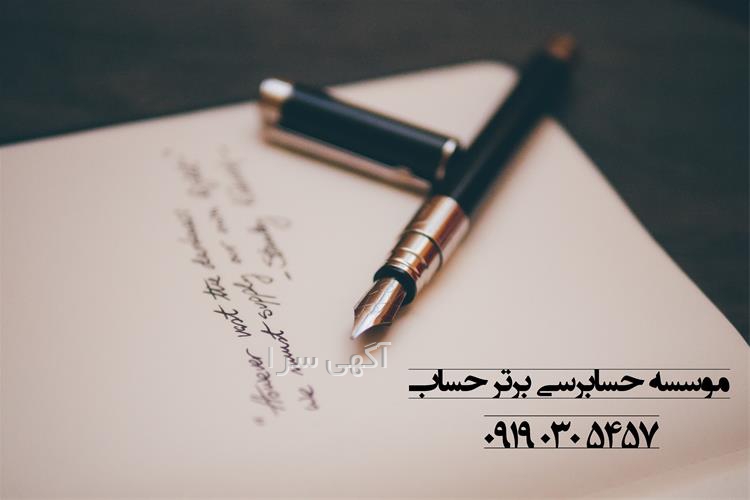 "However vast the darkness
we must supply our own light"
- Stanley Kubrick
آگهی سرا
موسسه حسابرسی برتر حساب
۰۹۱۹ ۰۳۰ ۵۴۵۷